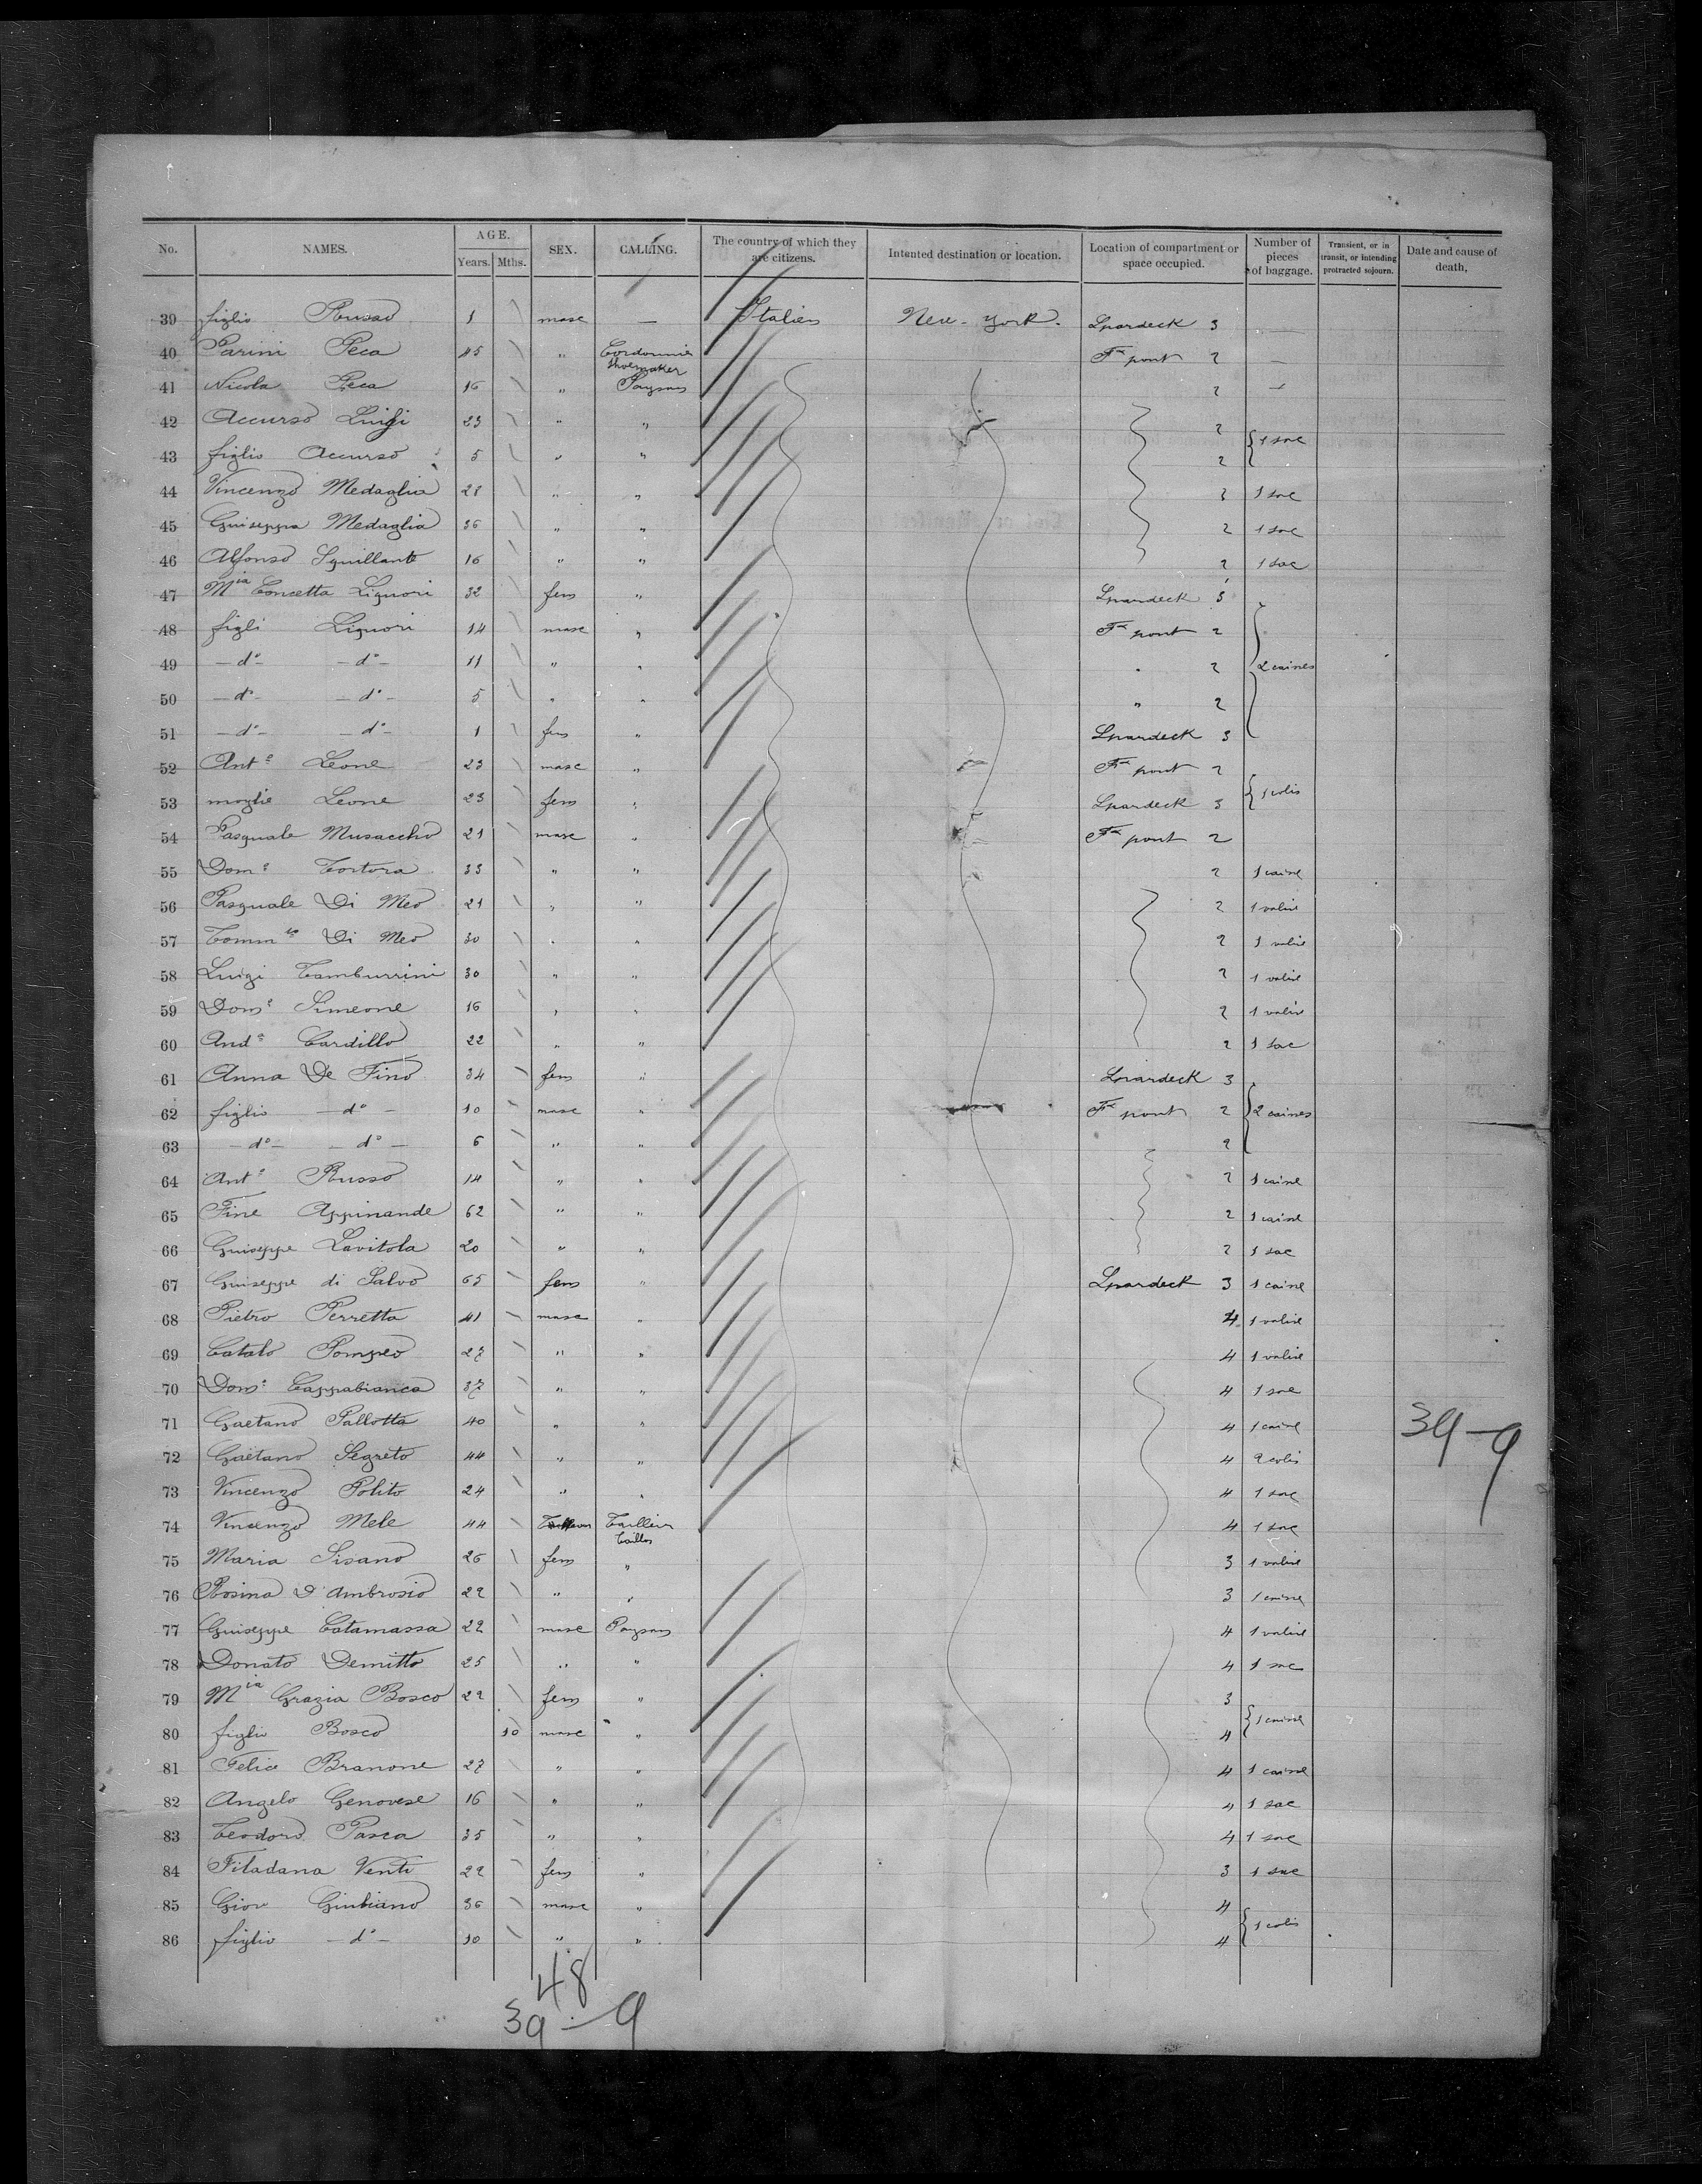 No. NAMES. AGE. Years. Mths. SEX. CALLING. The country of which they are citizens. Intented destination or location. Location of compartment or space occupied. Number of pieces of baggage. Transient, or in transit, or intending protracted sojourn. Date and cause of death,
39 figlio Russo 1 masc — Italien New-York. Spardeck 3 —
40 Parini Peca 45 " Cordonnier shoemaker Fx pont 2 —
41 Nicola Peca 16 " Paysan 2 —
42 Accurso Luigi 23 " " 2
43 figlio Accurso 5 " " 2 1 sac
44 Vincenzo Medaglia 28 " " 2 1 sac
45 Guiseppa Medaglia 36 " " 2 1 sac
46 Alfonso Squillante 16 " " 2 1 sac
47 Mia Concetta Liguori 32 fem " Spardeck 3
48 figli Liguori 14 masc " Fx pont 2
49 —do— —do— 11 " " " 2 2 caisses
50 —do— —do— 5 " " " 2
51 —do— —do— 1 fem " Spardeck 3
52 Anto Leone 23 masc " Fx pont 2
53 moglie Leone 23 fem " Spardeck 3 1 colis
54 Pasquale Musaccho 21 masc " Fx pont 2
55 Domo Tortora 33 " " 2 1 caisse
56 Pasquale Di Meo 21 " " 2 1 valise
57 Tommso Di Meo 30 " " 2 1 valise
58 Luigi Tamburrini 30 " " 2 1 valise
59 Domo Simeone 16 " " 2 1 valise
60 Anda Cardillo 22 " " 2 1 sac
61 Anna De Fino 34 fem " Spardeck 3
62 figlio —do— 10 masc " Fx pont 2 2 caisses
63 —do— —do— 6 " " 2
64 Anto Russo 14 " " 2 1 caisse
65 Fine Appinande 62 " " 2 1 caisse
66 Guiseppe Lavitola 20 " " 2 1 sac
67 Guiseppe di Salvo 65 fem " Spardeck 3 1 caisse
68 Pietro Perretta 41 masc " 4 1 valise
69 Catalo Pompeo 27 " " 4 1 valise
70 Domo Cappabianca 37 " " 4 1 sac
71 Gaetano Pallotta 40 " " 4 1 caisse 39-9
72 Gaetano Segreto 44 " " 4 2 colis
73 Vincenzo Polito 24 " " 4 1 sac
74 Vincenzo Mele 44 Tailleur Tailor 4 1 sac
75 Maria Sisano 26 fem " 3 1 valise
76 Rosina D'Ambrosio 22 " " 3 1 caisse
77 Guiseppe Catamassa 22 masc Paysan 4 1 valise
78 Donato Demitto 25 " " 4 1 sac
79 Mia Grazia Bosco 22 fem " 3
80 figlio Bosco 10 masc " 4 1 caisse
81 Felice Branone 27 " " 4 1 caisse
82 Angelo Genovese 16 " " 4 1 sac
83 Teodoro Pasca 35 " " 4 1 sac
84 Filadana Venti 22 fem " 3 1 sac
85 Giov Giuliano 36 masc " 4
86 figlio —do— 10 " " 4 1 colis
48
39-9